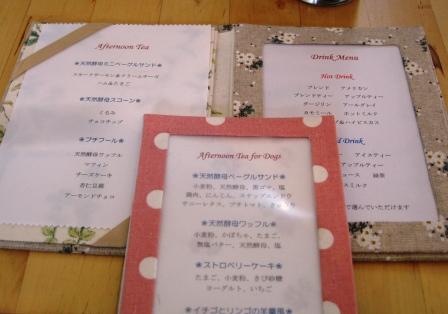 Afternoon Tea
❀天然酵母ミニベーグルサンド❀
スモークサーモン&クリームチーズ
ハム&たまご
❀天然酵母スコーン❀
くるみ
チョコチップ
❀プチフール❀
天然酵母ワッフル
マフィン
チーズケーキ
杏仁豆腐
アーモンドチョコ
Drink Menu
Hot Drink
ブレンド アメリカン
ブレンドティー アップルティー
ダージリン アールグレイ
カモミール ホットミルク
&ハイビスカス
d Drink
アイスティー
アップルティー
ュース 緑茶
スミルク
で選んでいただけます
Afternoon Tea for Dogs
❀天然酵母ベーグルサンド❀
小麦粉、天然酵母、黒ゴマ、塩
鶏肉、にんじん、スナップエンドウ
サニーレタス、プチトマト、
❀天然酵母ワッフル❀
小麦粉、かぼちゃ、たまご、
無塩バター、天然酵母、塩
❀ストロベリーケーキ❀
たまご、小麦粉、きび砂糖
ヨーグルト、いちご
❀イチゴとリンゴの羊羹風❀